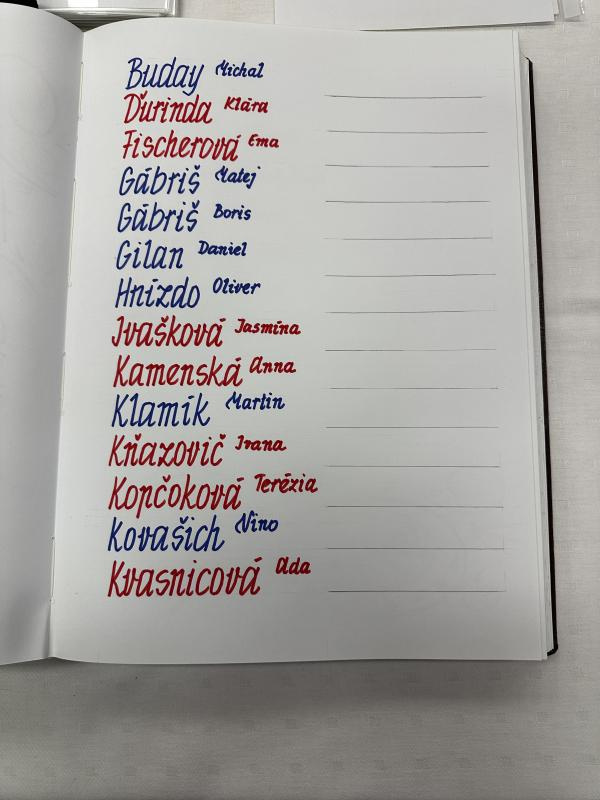 Buday Michal
Ďurinda Klára
Fischerová Ema
Gábriš Matej
Gábriš Boris
Gilan Daniel
Hnízdo Oliver
Ivašková Jasmína
Kamenská Anna
Klamík Martin
Kňazovič Ivana
Kopčoková Terézia
Kovašich Nino
Kvasnicová Ada